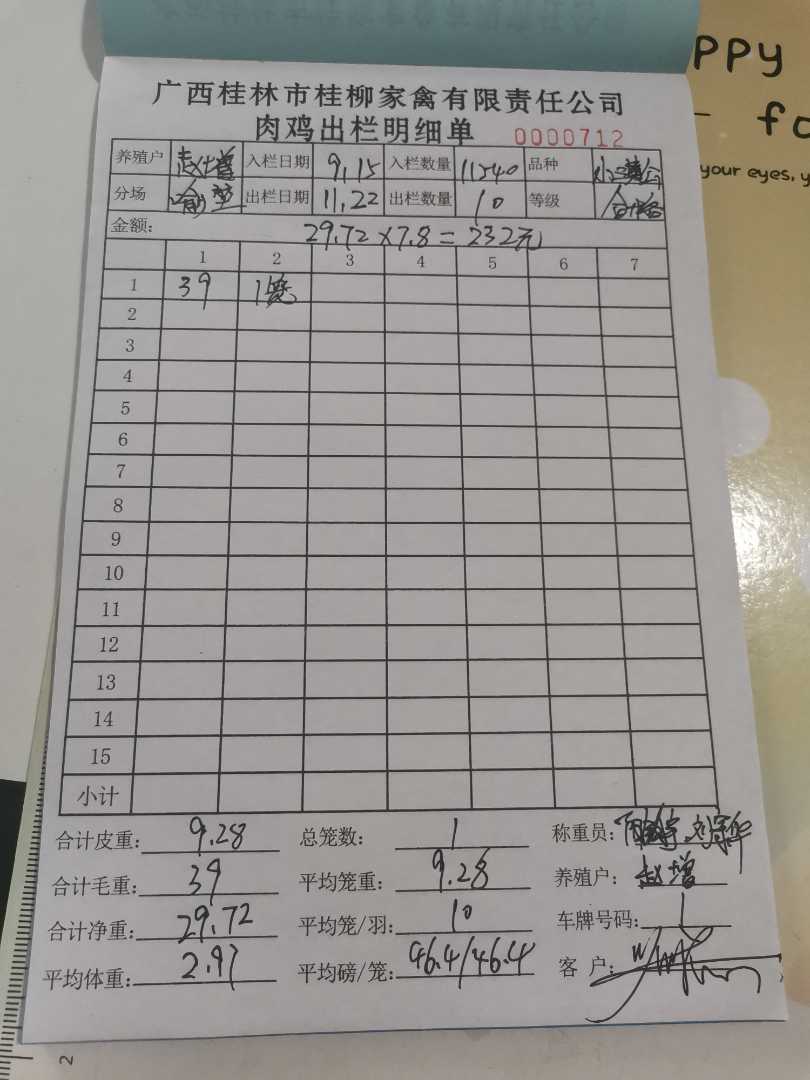 PPY
fo
your eyes, y
广西桂林市桂柳家禽有限责任公司
肉鸡出栏明细单 0000712
养殖户 赵增 入栏日期 9.15 入栏数量 11540 品种
分场 出栏日期 11.22 出栏数量 10 等级 合格
金额: 29.72×7.8=232元
1 2 3 4 5 6 7
1 39 1笼
2
3
4
5
6
7
8
9
10
11
12
13
14
15
小计
合计皮重: 9.28 总笼数: 1 称重员:
合计毛重: 39 平均笼重: 9.28 养殖户: 赵增
合计净重: 29.72 平均笼/羽: 10 车牌号码: 1
平均体重: 2.97 平均磅/笼: 46.4/46.4 客 户:
2